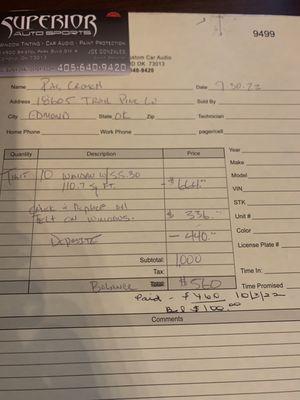 SUPERIOR
AUTO SPORTS
WINDOW TINTING · CAR AUDIO · PAINT PROTECTION
JOE GONZALES
405-640-9420
9499
Custom Car Audio
OD OK 73013
640-9420
Name Date 9.30.22
Address 18605 Trail Pine Ln Sold By
City Edmond State OK Zip Technician
Home Phone Work Phone pager/cell
Quantity Description Price
Year
Make
Model
VIN
STK
Unit #
Color
License Plate #
Tint 10 Window w/ SS.30
110.7 sq ft. $664.
Felt on windows. $336.
Deposit - 440.
Subtotal: 1,000
Tax: Time In:
Balance Total: $560 Time Promised
Paid - $460 10/3/22
Bal $100.00
Comments